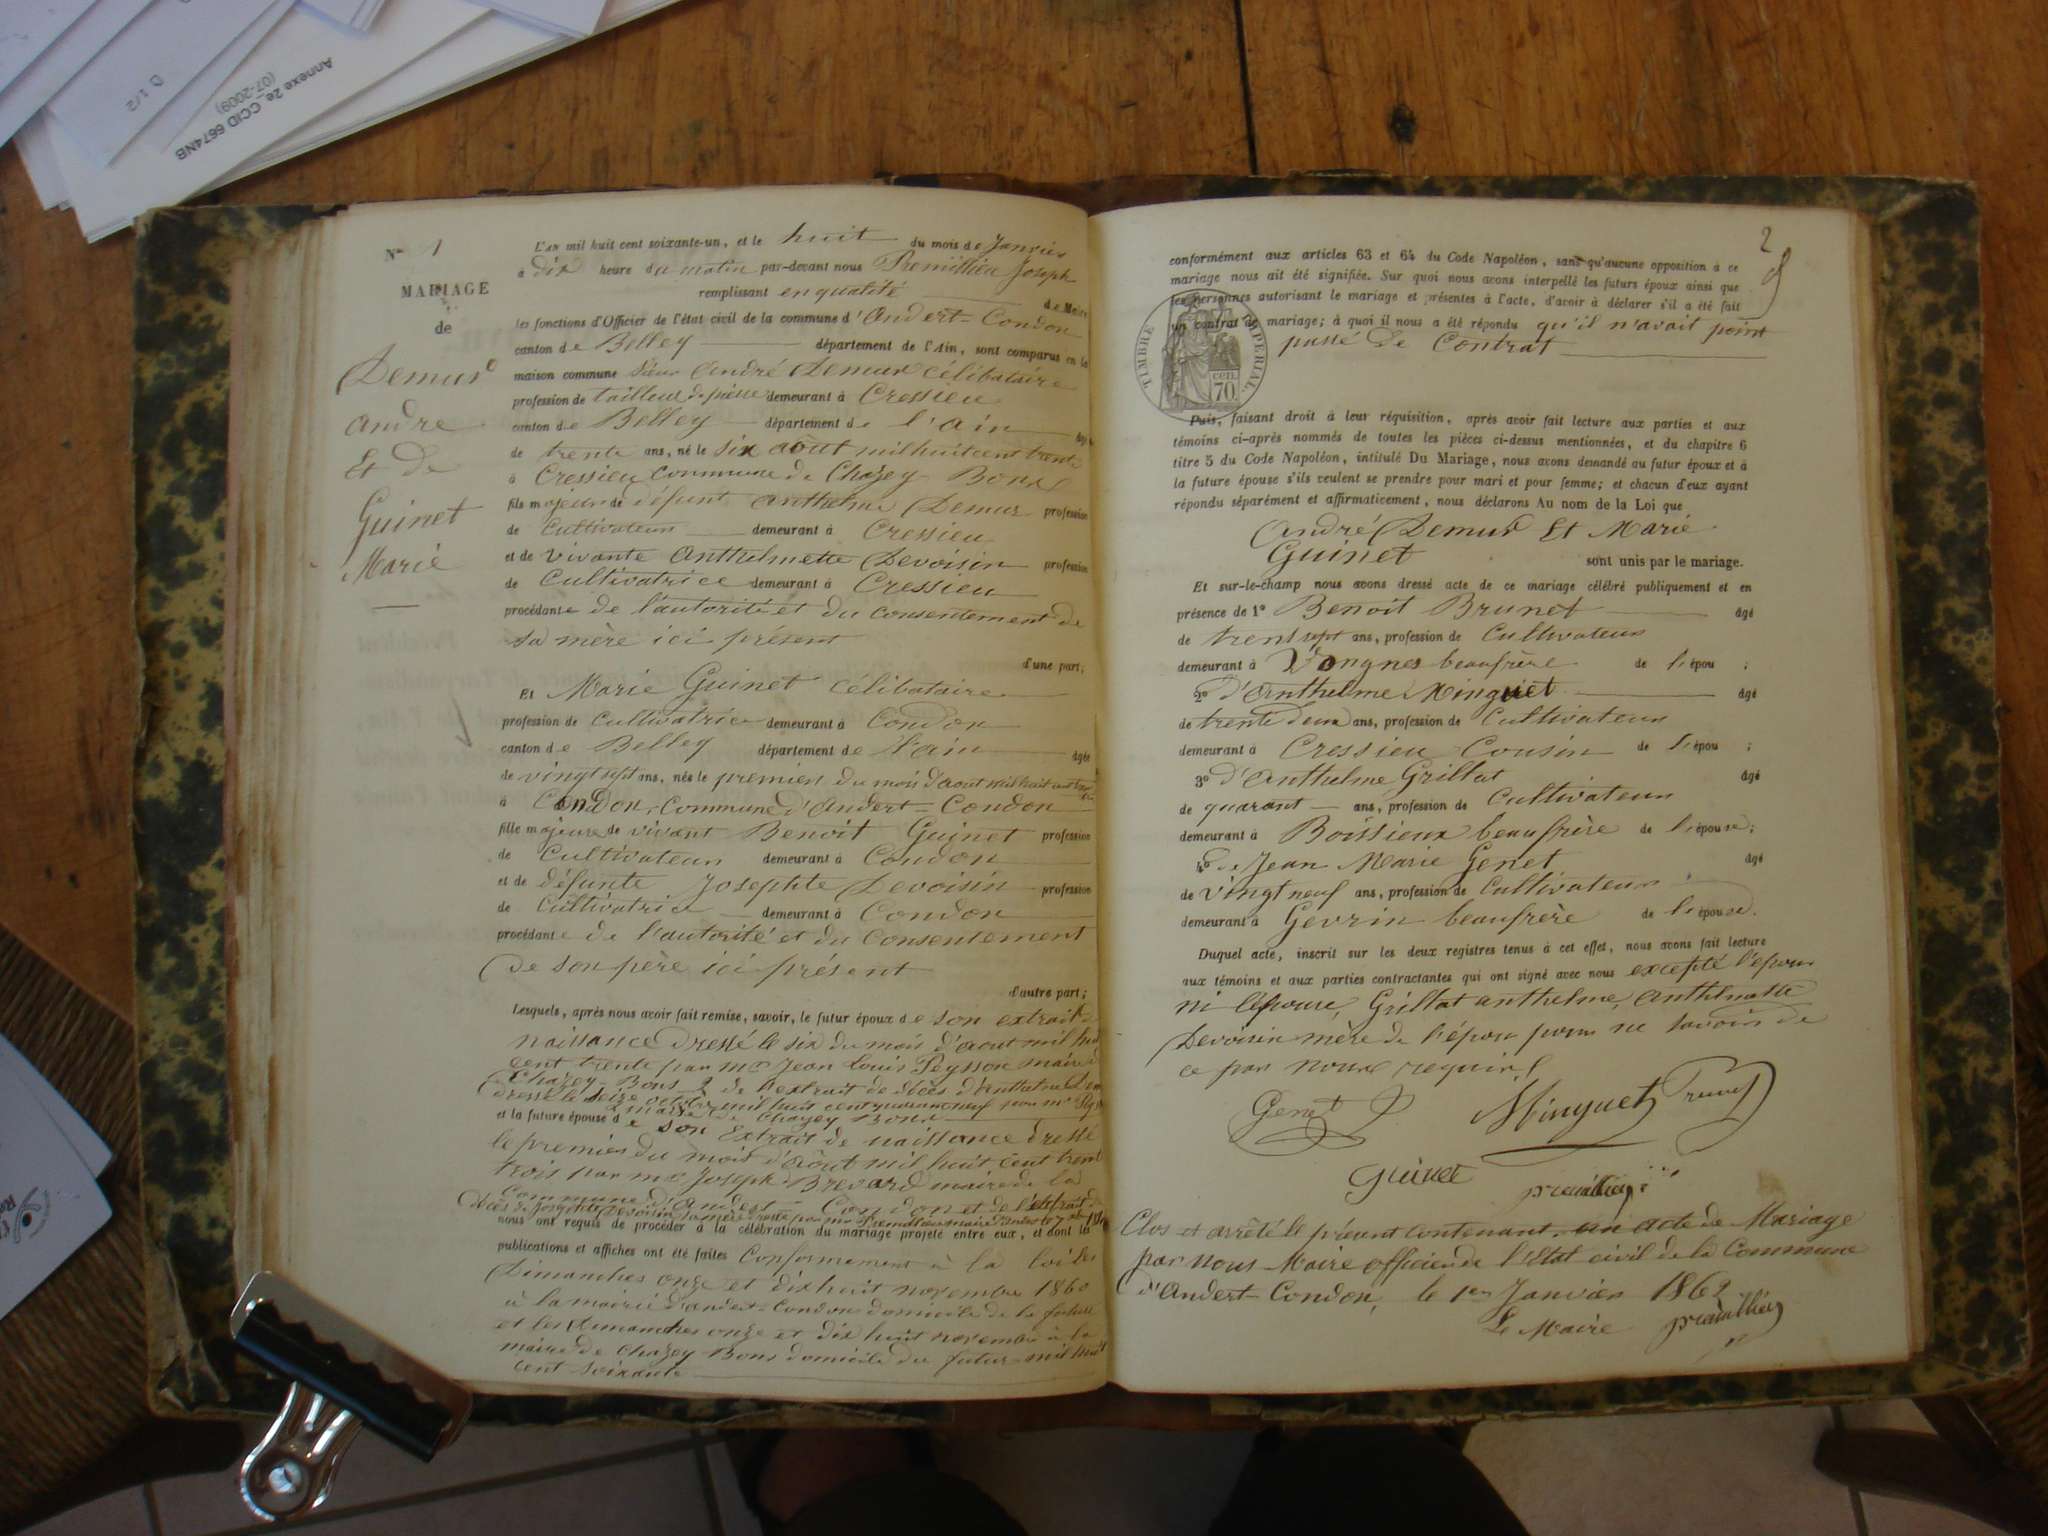 Annexe 2e_CCID 6674NB
(07-2009)
D 1/2
N° 1
MARIAGE
de
Demur
andre
Et De
Guinet
Marie
L'AN mil huit cent soixante-un, et le huit du mois de Janvier
à dix heure du matin par-devant nous Premillieu Joseph
remplissant en qualité de Maire
les fonctions d'Officier de l'état civil de la commune d'Andert-Condon
canton de Belley département de l'Ain, sont comparus en la
maison commune Sieur André Demur célibataire
profession de tailleur de pierre demeurant à Cressieu
canton de Belley département de l'ain âgé
de trente ans, né le six août mil huit cent trente
à Cressieu Commune de Chazey Bons
fils majeur de défunt anthelme Demur profession
de Cultivateur demeurant à Cressieu
et de vivante Anthelmette Devoisin profession
de Cultivatrice demeurant à Cressieu
procédante de l'autorité et du consentement de
sa mère ici présent
d'une part;
Et Marie Guinet célibataire
profession de Cultivatrice demeurant à Condon
canton de Belley département de l'ain âgée
de vingt sept ans, née le premier du mois d'aout mil huit cent
à Condon, Commune d'Andert-Condon
fille majeure de vivant Benoit Guinet profession
de Cultivateur demeurant à Condon
et de défunte Josephte Devoisin profession
de Cultivatrice demeurant à Condon
procédante de l'autorité et du Consentement
De son père ici présent
d'autre part;
Lesquels, après nous avoir fait remise, savoir, le futur époux de son extrait de
naissance dressé le six du mois d'aout mil huit
cent trente par mr Jean Louis Peysson maire
Chazey-Bons & de l'extrait de décès d'anthelme Demur
dressé le seize octobre mil huit cent quarante neuf par mr
maire de Chazey Bons
et la future épouse de son Extrait de naissance dressé
le premier du mois d'août mil huit cent trent
trois par mr Joseph Brevard maire de la
Commune d'Andert-Condon et de l'extrait de
décès de Josephte Devoisin sa mère dressé par mr Premillieu maire
nous ont requis de procéder à la célébration du mariage projeté entre eux, et dont les
publications et affiches ont été faites Conformement à la loi les
Dimanches onze et dix huit novembre 1860
à la mairie d'andert-Condon domicile de la future
et les Dimanches onze et dix huit novembre à la
maire de Chazey-Bons domicile du futur mil huit
cent soixante
2
conformément aux articles 63 et 64 du Code Napoléon, sans qu'aucune opposition à ce
mariage nous ait été signifiée. Sur quoi nous avons interpellé les futurs époux ainsi que
les personnes autorisant le mariage et présentes à l'acte, d'avoir à déclarer s'il a été fait
un contrat de mariage; à quoi il nous a été répondu qu'il n'avait point
passé de Contrat
TIMBRE IMPERIAL
cen.
70.
Puis, faisant droit à leur réquisition, après avoir fait lecture aux parties et aux
témoins ci-après nommés de toutes les pièces ci-dessus mentionnées, et du chapitre 6
titre 5 du Code Napoléon, intitulé Du Mariage, nous avons demandé au futur époux et à
la future épouse s'ils veulent se prendre pour mari et pour femme; et chacun d'eux ayant
répondu séparément et affirmativement, nous déclarons Au nom de la Loi que
André Demur Et Marie
Guinet sont unis par le mariage.
Et sur-le-champ nous avons dressé acte de ce mariage célébré publiquement et en
présence de 1° Benoit Brunet âgé
de trent sept ans, profession de Cultivateur
demeurant à Vongnes beaufrère de l'épou ;
2° d'Anthelme Minguet âgé
de trente deux ans, profession de Cultivateur
demeurant à Cressieu Cousin de l'épou ;
3° d'Anthelme Grillat âgé
de quarant ans, profession de Cultivateur
demeurant à Boissieux beaufrère de l'épouse;
4° de Jean Marie Genet âgé
de Vingt neuf ans, profession de Cultivateur
demeurant à Gevrin beaufrère de l'épouse.
Duquel acte, inscrit sur les deux registres tenus à cet effet, nous avons fait lecture
aux témoins et aux parties contractantes qui ont signé avec nous excepté l'epoux
ni l'épouse, Grillat anthelme, Anthelmette
Devoisin mère de l'épou pour ne savoir de
ce par nous requis
Genet Minguet Brunet
Guinet premillieu
Clos et arrêté le présent contenant un acte de Mariage
par nous Maire officier de l'état civil de la Commune
d'Andert-Condon, le 1er Janvier 1862
Le Maire premillieu